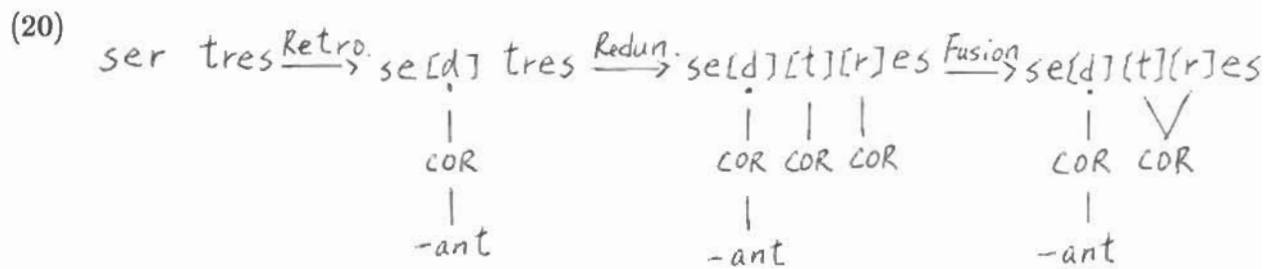 (20) ser tres Retro. → sе[ḍ] tres Redun. → se[ḍ][t][r]es Fusion → se[ḍ][t][r]es
COR COR COR COR COR COR
-ant -ant -ant